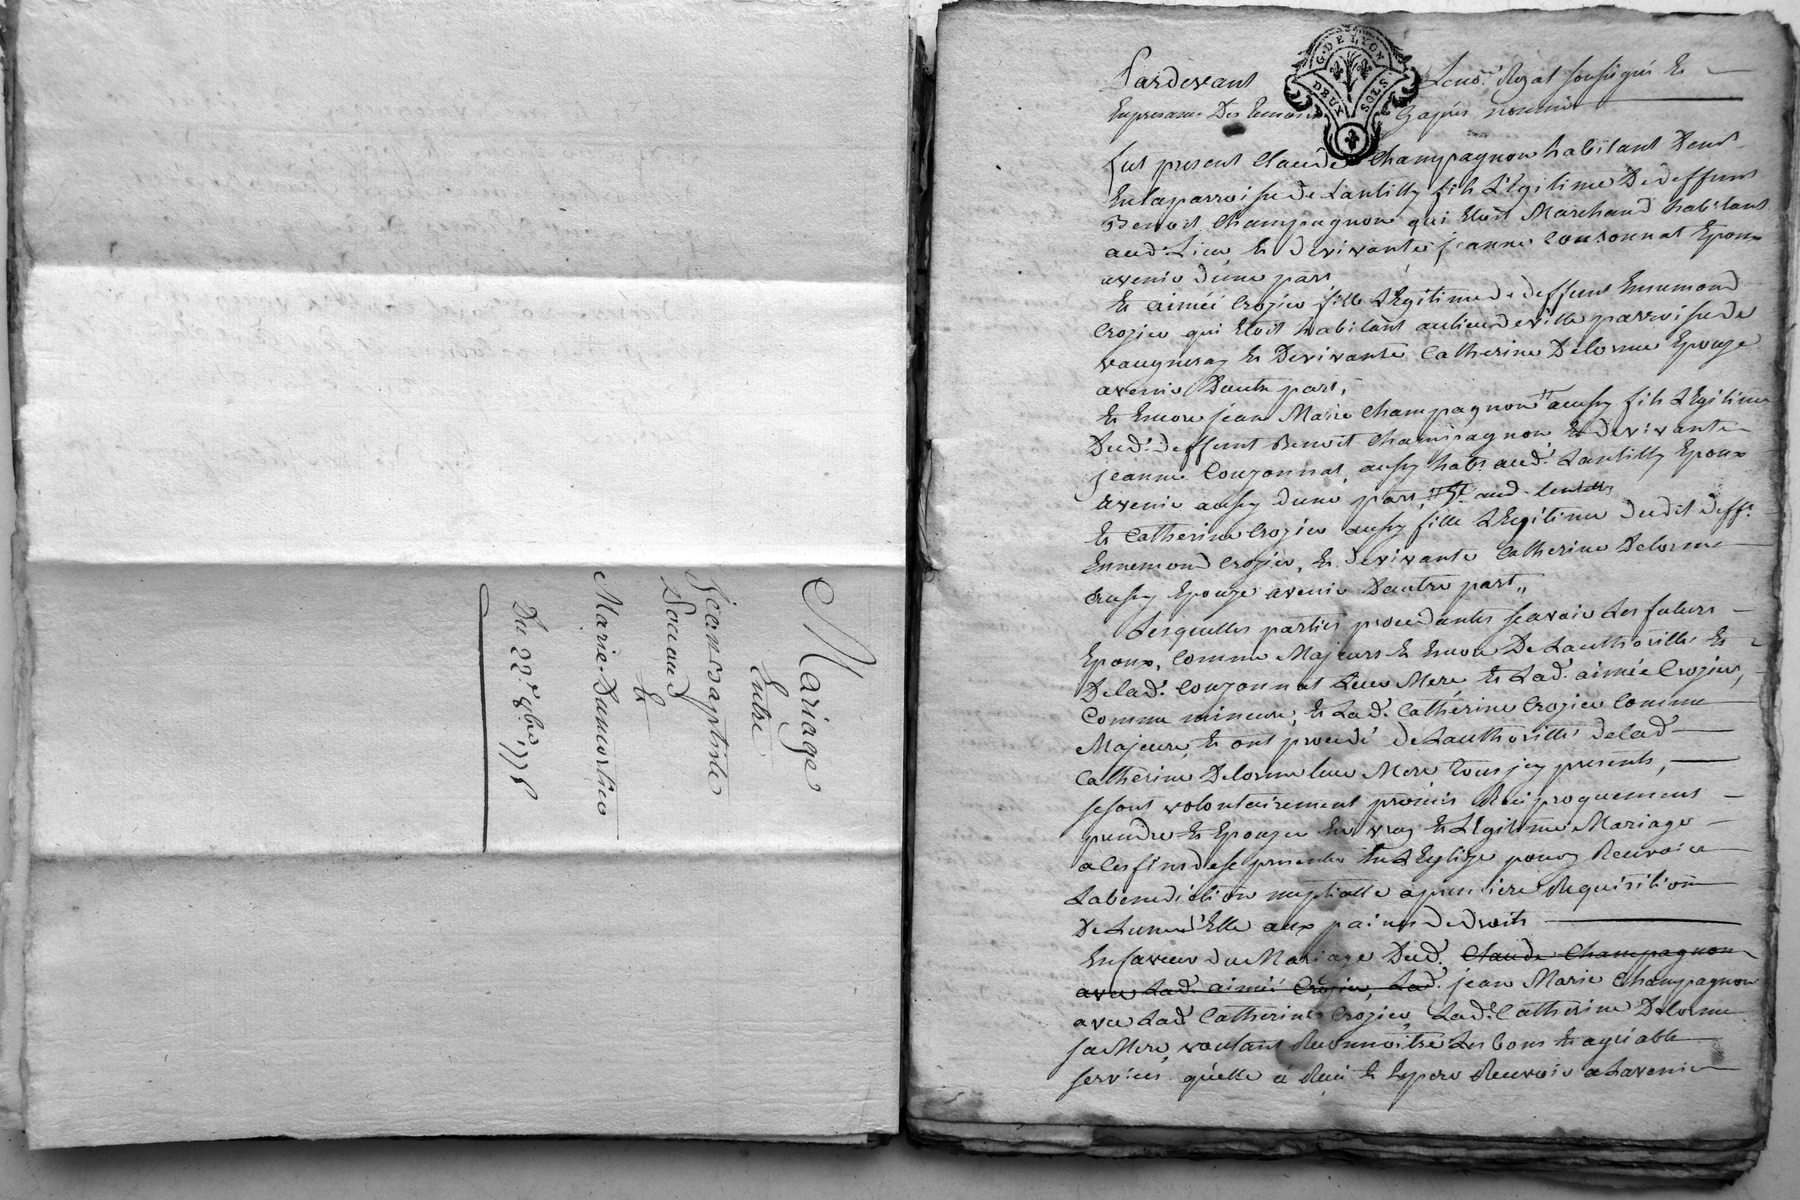 Mariage
Entre
Jean Baptiste
Et
Marie Dumortier
Du 22e 9bre 177
G. DE LYON
DEUX SOLS
Pardevant Le no.re Royal soussigné Et
En presence Des temoins Cy apres nommés
fut present Claude Champagnon habitant Dem.t
En la parroisse de Lantilly fils Légitime De deffunt
Benoit Champagnon qui Etoit Marchand habitant
aud. Lieu Et De vivante jeanne Couzonnat Epoux
avenir d'une part
Et aimée Crozier fille Légitime de deffunt Ennemond
Crozier qui Etoit habitant au lieu de ville parroisse de
vaugneray Et De vivante Catherine Delorme Epouze
avenir D'autre part,
Et Encore jean Marie Champagnon aussy fils Légitime
Dud. deffunt Benoit Champagnon Et de vivante
jeanne Couzonnat, aussy habt aud. Lantilly Epoux
avenir aussy d'une part, aud. Lentilly
Et Catherine Crozier aussy fille Légitime dudit deff.t
Ennemond Crozier, Et de vivante Catherine Delorme
aussy Epouze avenir D'autre part,,
Lesquelles parties procedantes sçavoir Les futurs
Epoux, Comme Majeurs Et Encore De Lauthorille Et
De lad. Couzonnat Leur Mere Et Lad. aimée Crozier,
Comme mineure, Et Lad. Catherine Crozier Comme
Majeure, Et ont procedé de Lauthorité de lad
Catherine Delorme leur Mere tous icy presents,
se sont volontairement promis Reciproquement
prendre Et Epouzer En vray Et Légitime Mariage
a Ces fins de se presenter En L'Eglize pour y Recevoir
La benediction nuptialle a premiere Requisition
De Lun ou d'Elle aux paines de droits
En faveur du Mariage Dud. Claude Champagnon
avec Lad. aimée Crozier, Lad. jean Marie Champagnon
avec Lad. Catherine Crozier, Lad. Catherine Delorme
sa Mere, voulant Reconnoitre Les bons Et agréable
services quelle a Reçu Et Espere Recevoir a Lavenir